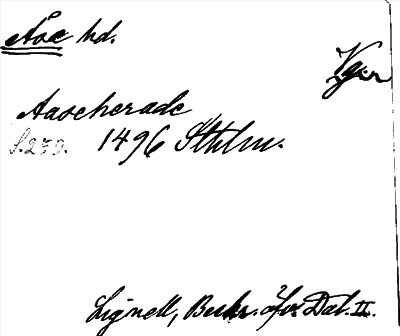 Åse hd.
Vgm
Aascherade
s.250. 1496 Sthlm.
Lignell, Beskr. öfver Dal. II.